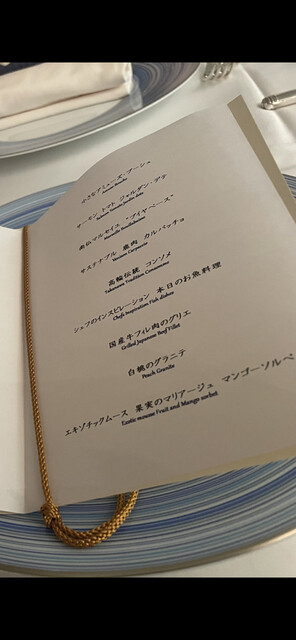 小さなアミューズ・ブーシュ
Amuse Bouche
サーモン トマト ジャルダン・デテ
Salmon Tomato Jardin dete
南仏マルセイユ "ブイヤベース"
Marseille Bouillabaisse
サステナブル 鹿肉 カルパッチョ
Venison Carpaccio
高輪伝統 コンソメ
Takanawa Tradition Consomme
シェフのインスピレーション 本日のお魚料理
Chefs inspiration Fish dishes
国産牛フィレ肉のグリエ
Grilled Japanese Beef Fillet
白桃のグラニテ
Peach Granite
エキゾチックムース 果実のマリアージュ マンゴーソルベ
Exotic mousse Fruit and Mango sorbet